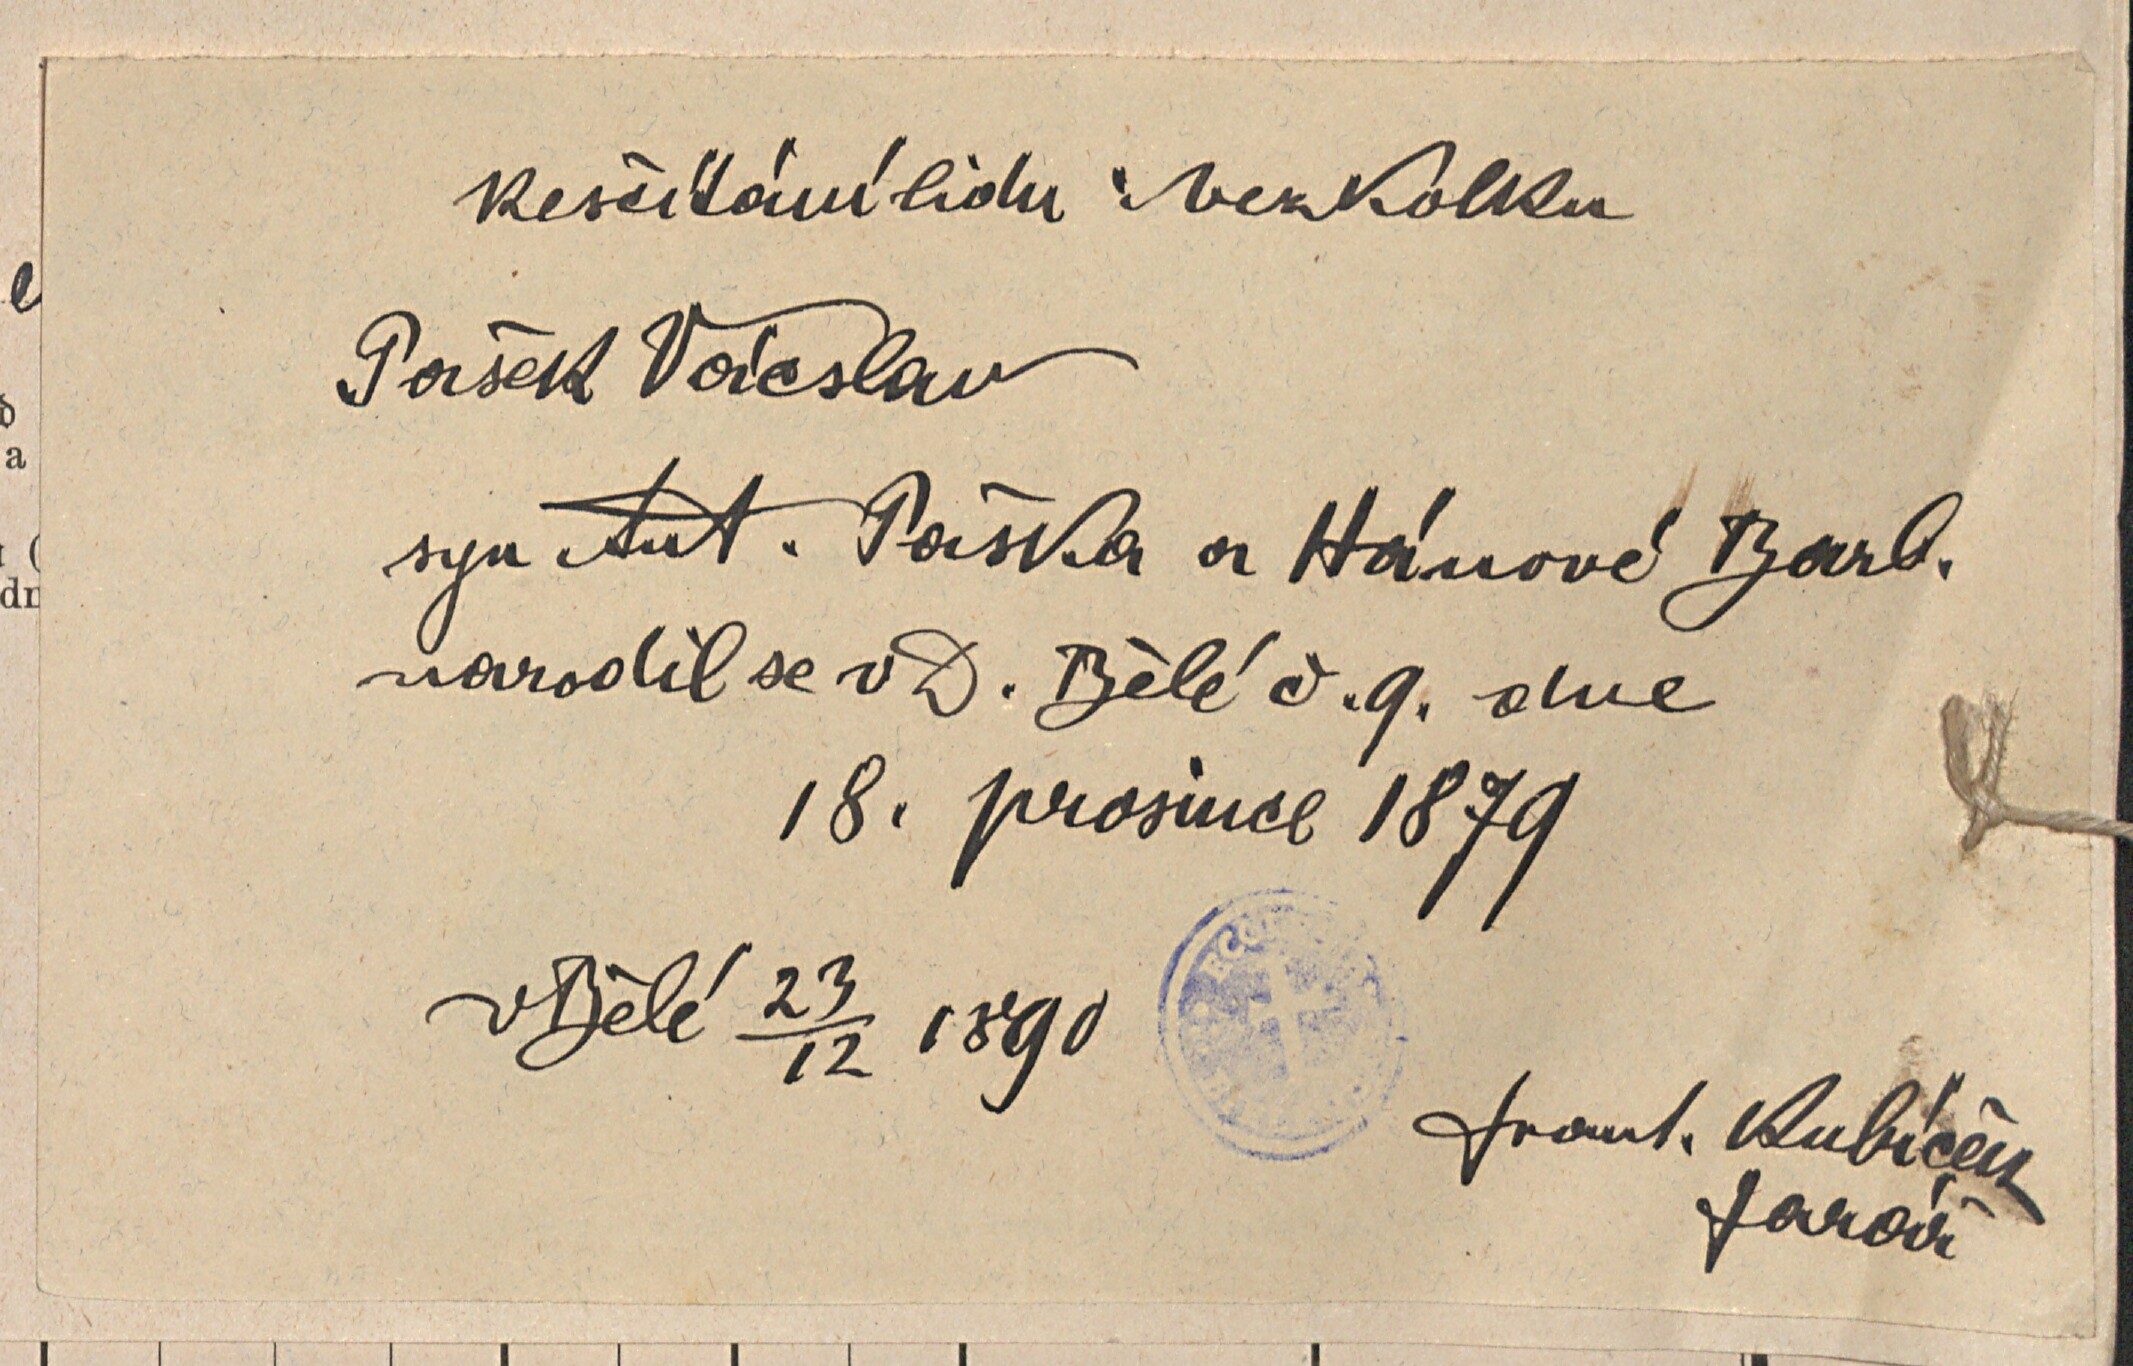 Ke sčítání lidu bez kolku
Pašek Václav
syn Ant. Paška a Hánové Barb.
narodil se v D. Bělé č. 9. dne
18. prosince 1879
v Bělé 23/12 1890
Frant. Kubíček
farář